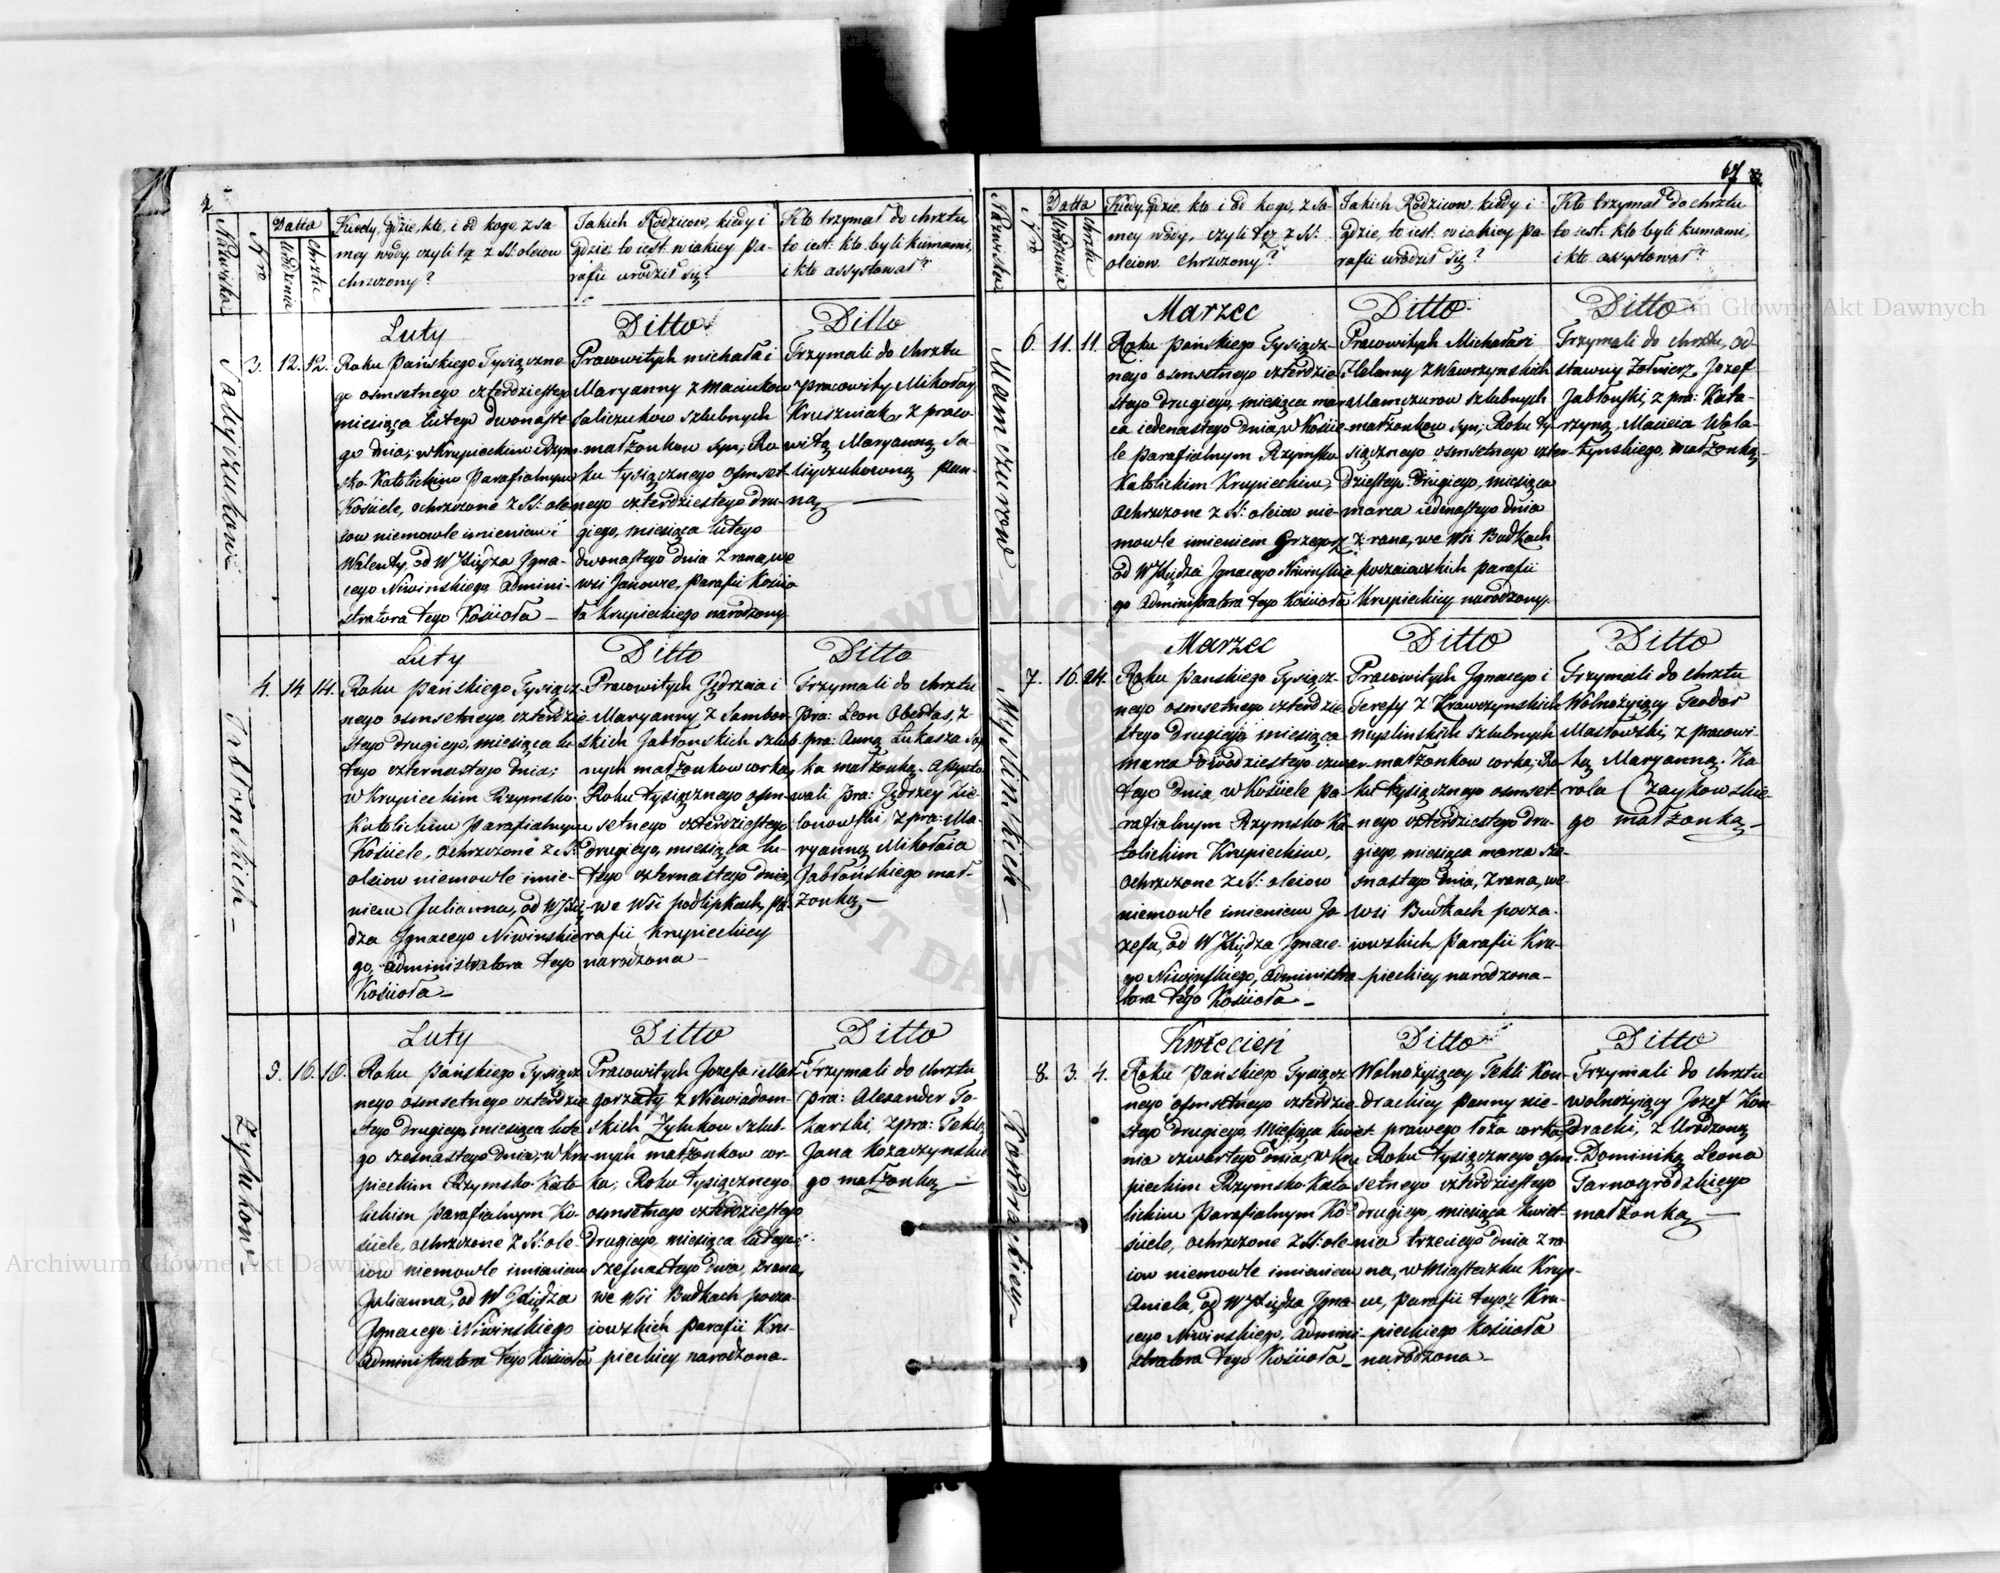 Nazwiska
Nro
Datta
Urodzenia
Chrztu
Kiedy, gdzie, kto, i od kogo, z sa-
mey wody czyli też z SS: oleiow
chrzczony?
Jakich Rodzicow, kiedy i
gdzie, to iest: w iakiey pa-
rafii urodził się?
Kto trzymał do chrztu
to iest: kto byli kumami,
i kto assystował?
Saliyczukow
3.
12.
12.
Luty
Roku Pańskiego Tysiączne
go osmsetnego czterdziestego
miesiąca lutego dwónaste
go dnia; w Krupieckim Rzym-
sko Katolickim Parafialnym
Kościele, ochrzczone z SS: ole
iow niemowle imieniem
Walenty, od W Xiędza Igna-
cego Niwinskiego, admini-
stratora tego Kościoła —
Ditto
Pracowitych michała i
Maryanny z Maciukow
Saliczukow szlubnych
małżonkow syn; Ro-
ku tysiącznego osmset-
nego czterdziestego dru-
giego, miesiąca lutego
dwonastego dnia z rana, we
wsi Janowze, Parafii Koscio
ła Krupieckiego narodzony
Ditto
Trzymali do chrztu
pracowity Mikołay
Kruszniak, z praco-
witą Maryanną Sa-
liyczukowną pan-
ną —
4.
14.
14.
Jabłońskich —
Luty
Roku Pańskiego Tysiącz-
nego osmsetnego, czterdzie-
stego drugiego, miesiąca lu-
tego czternastego dnia;
w Krupieckim Rzymsko
Katolickim Parafialnym
Kościele, ochrzczone z SS:
oleiow niemowle imie-
niem Julianna, od W Xię-
dza Ignacego Niwinskie
go, administratora tego
Kościoła —
Ditto
Pracowitych Jędrzeia i
Maryanny z Sambor-
skich Jabłonskich szlub-
nych małżonkow corka,
Roku tysiącznego osm-
setnego czterdziestego
drugiego, miesiąca lu-
tego czternastego dnia,
we Wsi podlipkach, pa-
rafii Krupieckiey
narodzona —
Ditto
Trzymali do chrztu
pra: Leon Obertas, z
pra: Anną Łukasza
ka małżonką. Assysto
wali pra: Jędrzey Zie
lonowski, z pra: Ma-
ryanną Mikołaia
Jabłońskiego mał-
żonką —
5.
16.
16.
Zylukow —
Luty
Roku Pańskiego Tysiącz
nego osmsetnego czterdzie
stego drugiego, miesiąca lute
go szesnastego dnia, w Kru
pieckim Rzymsko Kato-
lickim Parafialnym Ko-
ściele, ochrzczone z SS: ole-
iow niemowle imieniem
Julianna, od W Xiędza
Ignacego Niwinskiego
administratora tego Kościoła
Ditto
Pracowitych Jozefa i Mał
gorzaty z Niewiadom-
skich Zylukow szlub-
nych małżonkow cor-
ka; Roku tysiącznego
osmsetnego czterdziestego
drugiego, miesiąca lutego
szesnastego dnia, z rana,
we Wsi Budkach pocza-
iowskich Parafii Kru-
pieckiey narodzona —
Ditto
Trzymali do chrztu
pra: Alexander To-
karski, z pra: Teklą
Jana Kozaczynskie
go małżonką —
67
Nazwiska
Nro
Datta
Urodzenia
Chrztu
Kiedy, gdzie, kto i od kogo, z sa-
mey wody, czyli też z SS:
oleiow chrzczony?
Jakich Rodzicow, kiedy i
gdzie, to iest: w iakiey pa-
rafii urodził się?
Kto trzymał do chrztu
to iest: kto byli kumami,
i kto assystował?
Mamczurow —
6.
11.
11.
Marzec
Roku Pańskiego Tysiącz-
nego osmsetnego czterdzie
stego drugiego, miesiąca mar
ca iedenastego dnia, w Koście-
le parafialnym Rzymsko
Katolickim Krupieckim,
ochrzczone z SS: oleiow nie-
mowle imieniem Grzegorz
od W Xiędza Ignacego Niwinskie
go administratora tego Kościoła
Ditto
Pracowitych Michała i
Helanny z Wawrzynskich
Mamczurow szlubnych
małżonkow syn; Roku ty-
siącznego osmsetnego czter-
dziestego drugiego, miesiąca
marca iedenastego dnia
z rana, we Wsi Budkach
poczaiowskich parafii
Krupieckiey narodzony.
Ditto
Trzymali do chrztu, od-
stawny żołnierz, Jozef
Jabłoński, z pra: Kata-
rzyną, Macieia Woła-
tynskiego, małżonką —
Myślinskich —
7.
16.
24.
Marzec
Roku Pańskiego Tysiącz-
nego osmsetnego czterdzie
stego drugiego, miesiąca
marca dwódziestego czwar-
tego dnia w Kościele pa-
rafialnym Rzymsko Ka-
tolickim Krupieckim,
ochrzczone z SS: oleiow
niemowle imieniem Jo-
zefa, od W Xiędza Ignace-
go Niwinskiego, administra-
tora tego Kościoła —
Ditto
Pracowitych Ignacego i
Teresy z Krawczynskich
myslinskich szlubnych
małżonkow corka; Ro-
ku tysiącznego osmset-
nego czterdziestego dru-
giego, miesiąca marca sze-
snastego dnia, z rana, we
wsi Budkach pocza-
iowskich, Parafii Kru-
pieckiey narodzona —
Ditto
Trzymali do chrztu
Wolnożyiący Teodor
Masłowski, z pracowi-
tą Maryanną. Ka-
rola Czaykowskie-
go małżonką —
Kondrackiey —
8.
3.
4.
Kwiecień
Roku Pańskiego Tysiącz
nego osmsetnego czterdzie-
stego drugiego, Miesiąca Kwiet-
nia czwartego dnia, w Kru
pieckim Rzymsko Kato
lickim Parafialnym Ko-
ściele, ochrzczone z SS: ole-
iow niemowle imieniem
Aniela, od W Xiędza Igna-
cego Niwinskiego, admini-
stratora tego Kościoła —
Ditto
Wolnożyiącey Tekli Kon-
drackiey panny nie-
prawego łoża corka;
Roku tysiącznego osm-
setnego czterdziestego
drugiego, miesiąca kwiet-
nia trzeciego dnia z ra
na, w Miasteczku Krup-
cu, parafii tegoż Kru-
pieckiego kościoła
narodzona —
Ditto
Trzymali do chrztu
wolnożyiący Jozef Kon-
dracki, z Urodzoną
Dominiką Leona
Tarnogrodzkiego
małżonką —
Archiwum Główne Akt Dawnych
Archiwum Główne Akt Dawnych